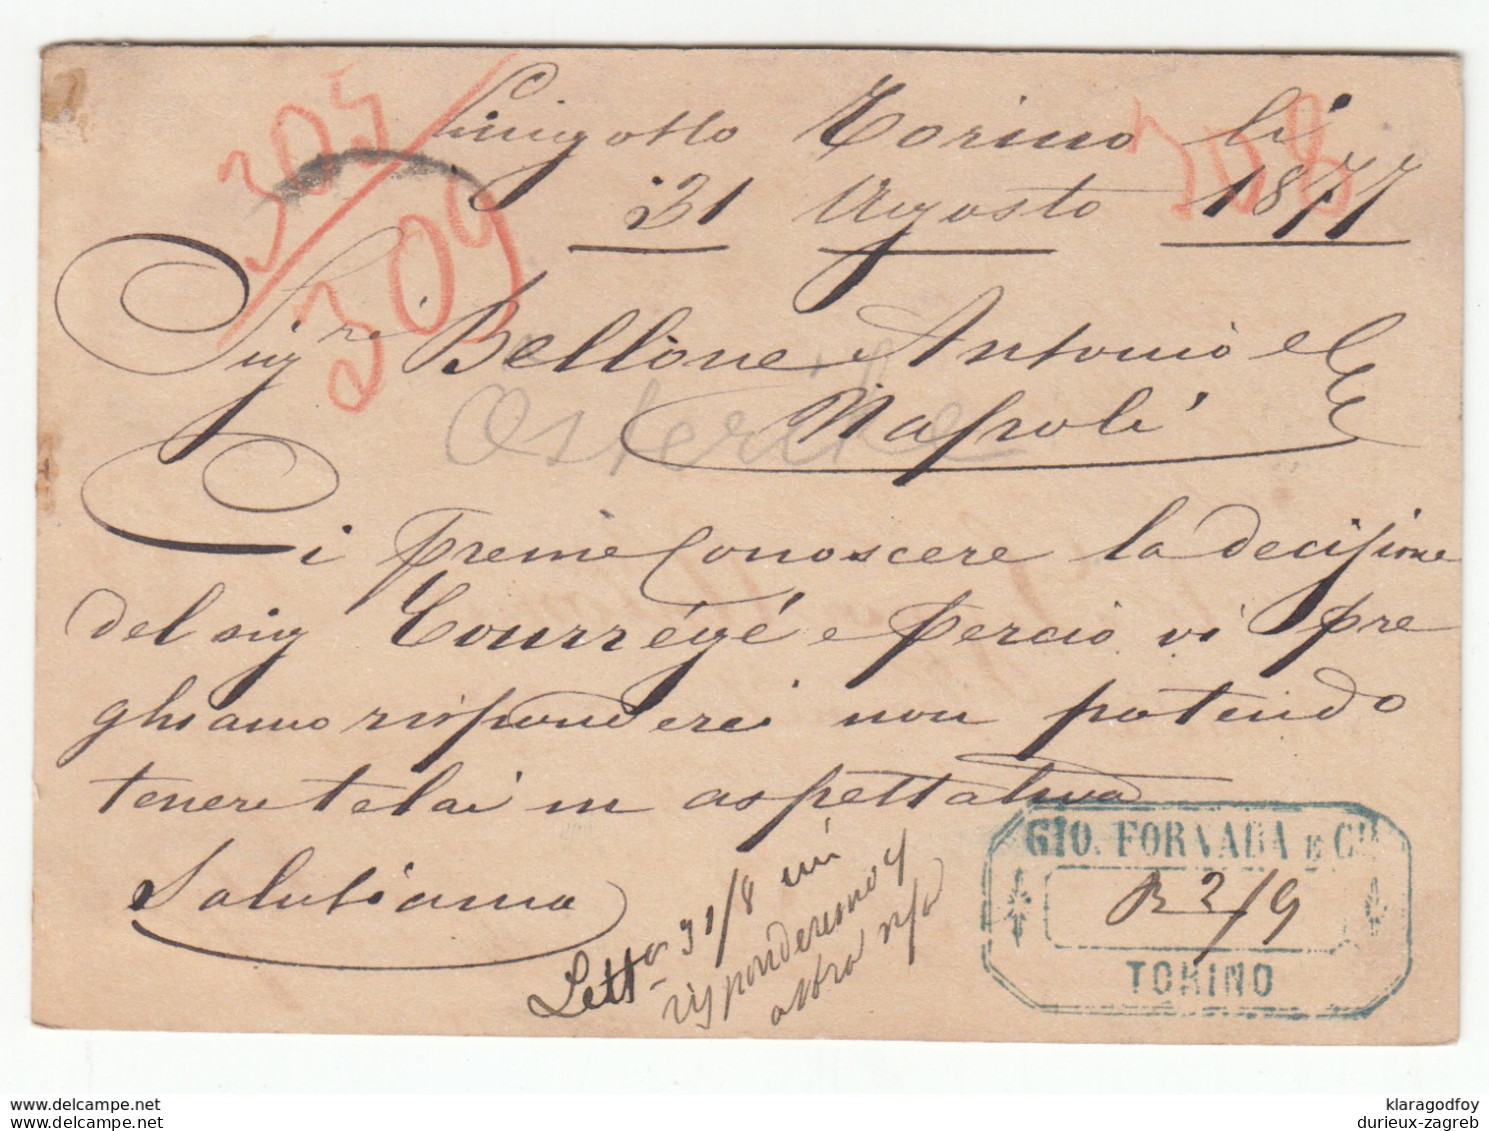 305
309
308
Lingotto Torino li
31 Agosto 1877
Sig.ri Bellone Antonio e C
Napoli
Ci preme Conoscere la decisione
del sig Courrégé e perciò vi pre
ghiamo risponderci non potendo
tenere telai in aspettativa
Salutiamo
Letta 31/8
risponderemo
altra
GIO. FORNARA E C.
R 2/9
TORINO
klaragodfoy
delcampe.net
durieux-zagreb